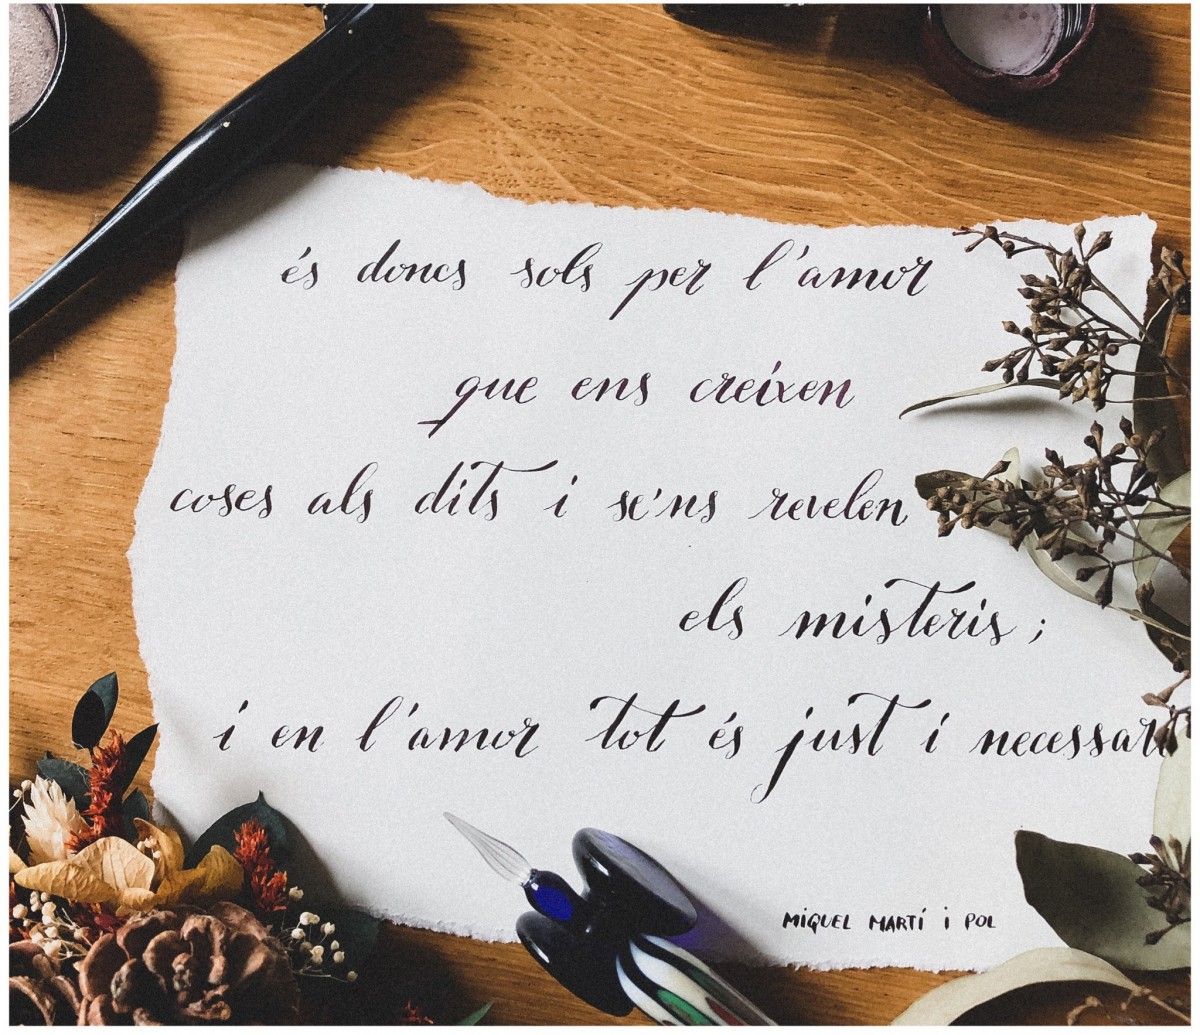 és doncs sols per l'amor
que ens creixen
coses als dits i se'ns revelen
els misteris;
i en l'amor tot és just i necessari
MIQUEL MARTÍ I POL